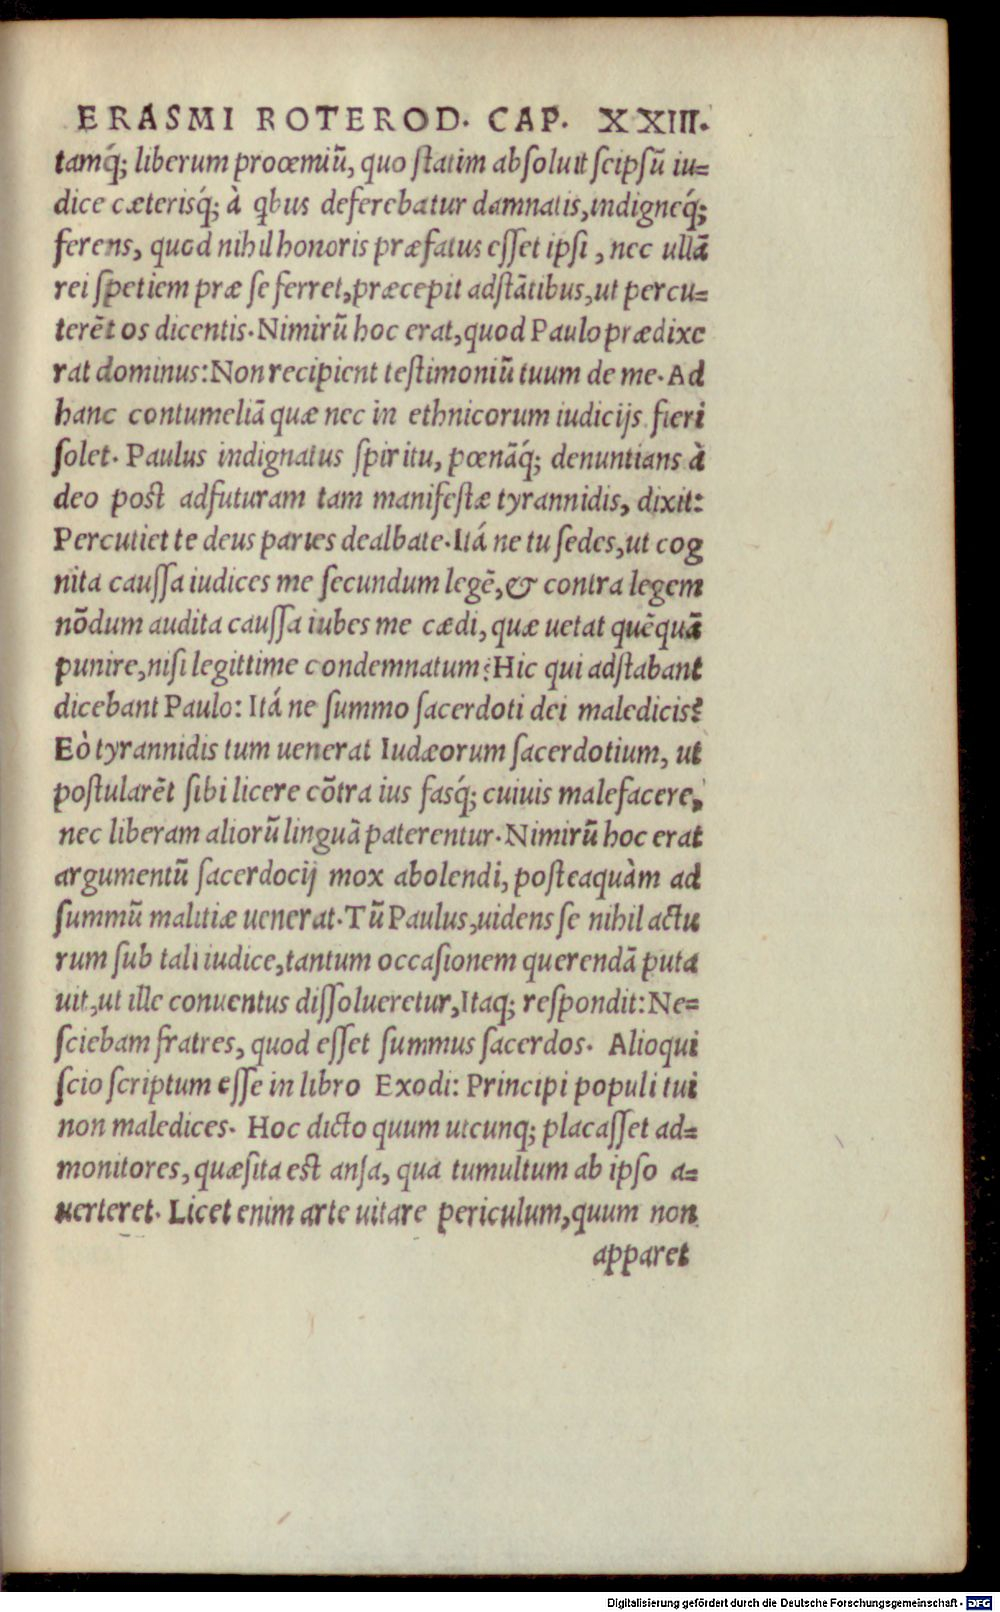 ERASMI ROTEROD. CAP. XXIII.
tamq́; liberum proœmiũ, quo statim absoluit seipsũ iu=
dice cæterisq́; à qbus deferebatur damnatis, indigneq́;
ferens, quod nihil honoris præfatus esset ipsi, nec ullã
rei spetiem præ se ferret, præcepit adstãtibus, ut percu=
terẽt os dicentis. Nimirũ hoc erat, quod Paulo prædixe
rat dominus: Non recipient testimoniũ tuum de me. Ad
hanc contumeliã quæ nec in ethnicorum iudicijs fieri
solet. Paulus indignatus spiritu, pœnãq́; denuntians à
deo post adfuturam tam manifestæ tyrannidis, dixit:
Percutiet te deus paries dealbate. Itá ne tu sedes, ut cog
nita caussa iudices me secundum legẽ, & contra legem
nõdum audita caussa iubes me cædi, quæ uetat quẽquã
punire, nisi legittime condemnatum? Hic qui adstabant
dicebant Paulo: Itá ne summo sacerdoti dei maledicis?
Eò tyrannidis tum uenerat Iudæorum sacerdotium, ut
postularẽt sibi licere cõtra ius fasq́; cuiuis malefacere,
nec liberam aliorũ linguã paterentur. Nimirũ hoc erat
argumentũ sacerdocij mox abolendi, posteaquàm ad
summũ malitiæ uenerat. Tũ Paulus, uidens se nihil actu
rum sub tali iudice, tantum occasionem querendã puta
uit, ut ille conuentus dissolueretur, Itaq; respondit: Ne=
sciebam fratres, quod esset summus sacerdos. Alioqui
scio scriptum esse in libro Exodi: Principi populi tui
non maledices. Hoc dicto quum utcunq; placasset ad=
monitores, quæsita est ansa, qua tumultum ab ipso a=
uerteret. Licet enim arte uitare periculum, quum non
apparet
Digitalisierung gefördert durch die Deutsche Forschungsgemeinschaft - DFG